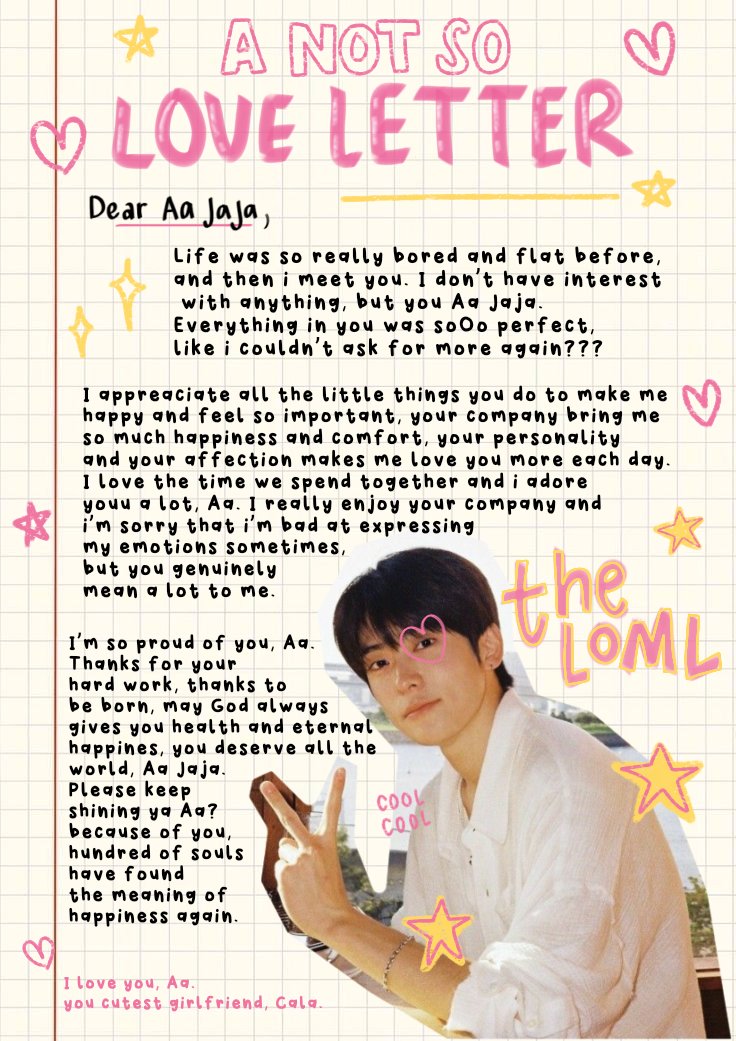 A NOT SO
LOVE LETTER
Dear Aa Jaja,
Life was so really bored and flat before,
and then i meet you. I don't have interest
with anything, but you Aa Jaja.
Everything in you was soOo perfect,
like i couldn't ask for more again???
I appreaciate all the little things you do to make me
happy and feel so important, your company bring me
so much happiness and comfort, your personality
and your affection makes me love you more each day.
I love the time we spend together and i adore
youu a lot, Aa. I really enjoy your company and
i'm sorry that i'm bad at expressing
my emotions sometimes,
but you genuinely
mean a lot to me.
the
LOML
I'm so proud of you, Aa.
Thanks for your
hard work, thanks to
be born, may God always
gives you health and eternal
happines, you deserve all the
world, Aa Jaja.
Please keep
shining ya Aa?
because of you,
hundred of souls
have found
the meaning of
happiness again.
COOL
COOL
I love you, Aa.
you cutest girlfriend, Cala.